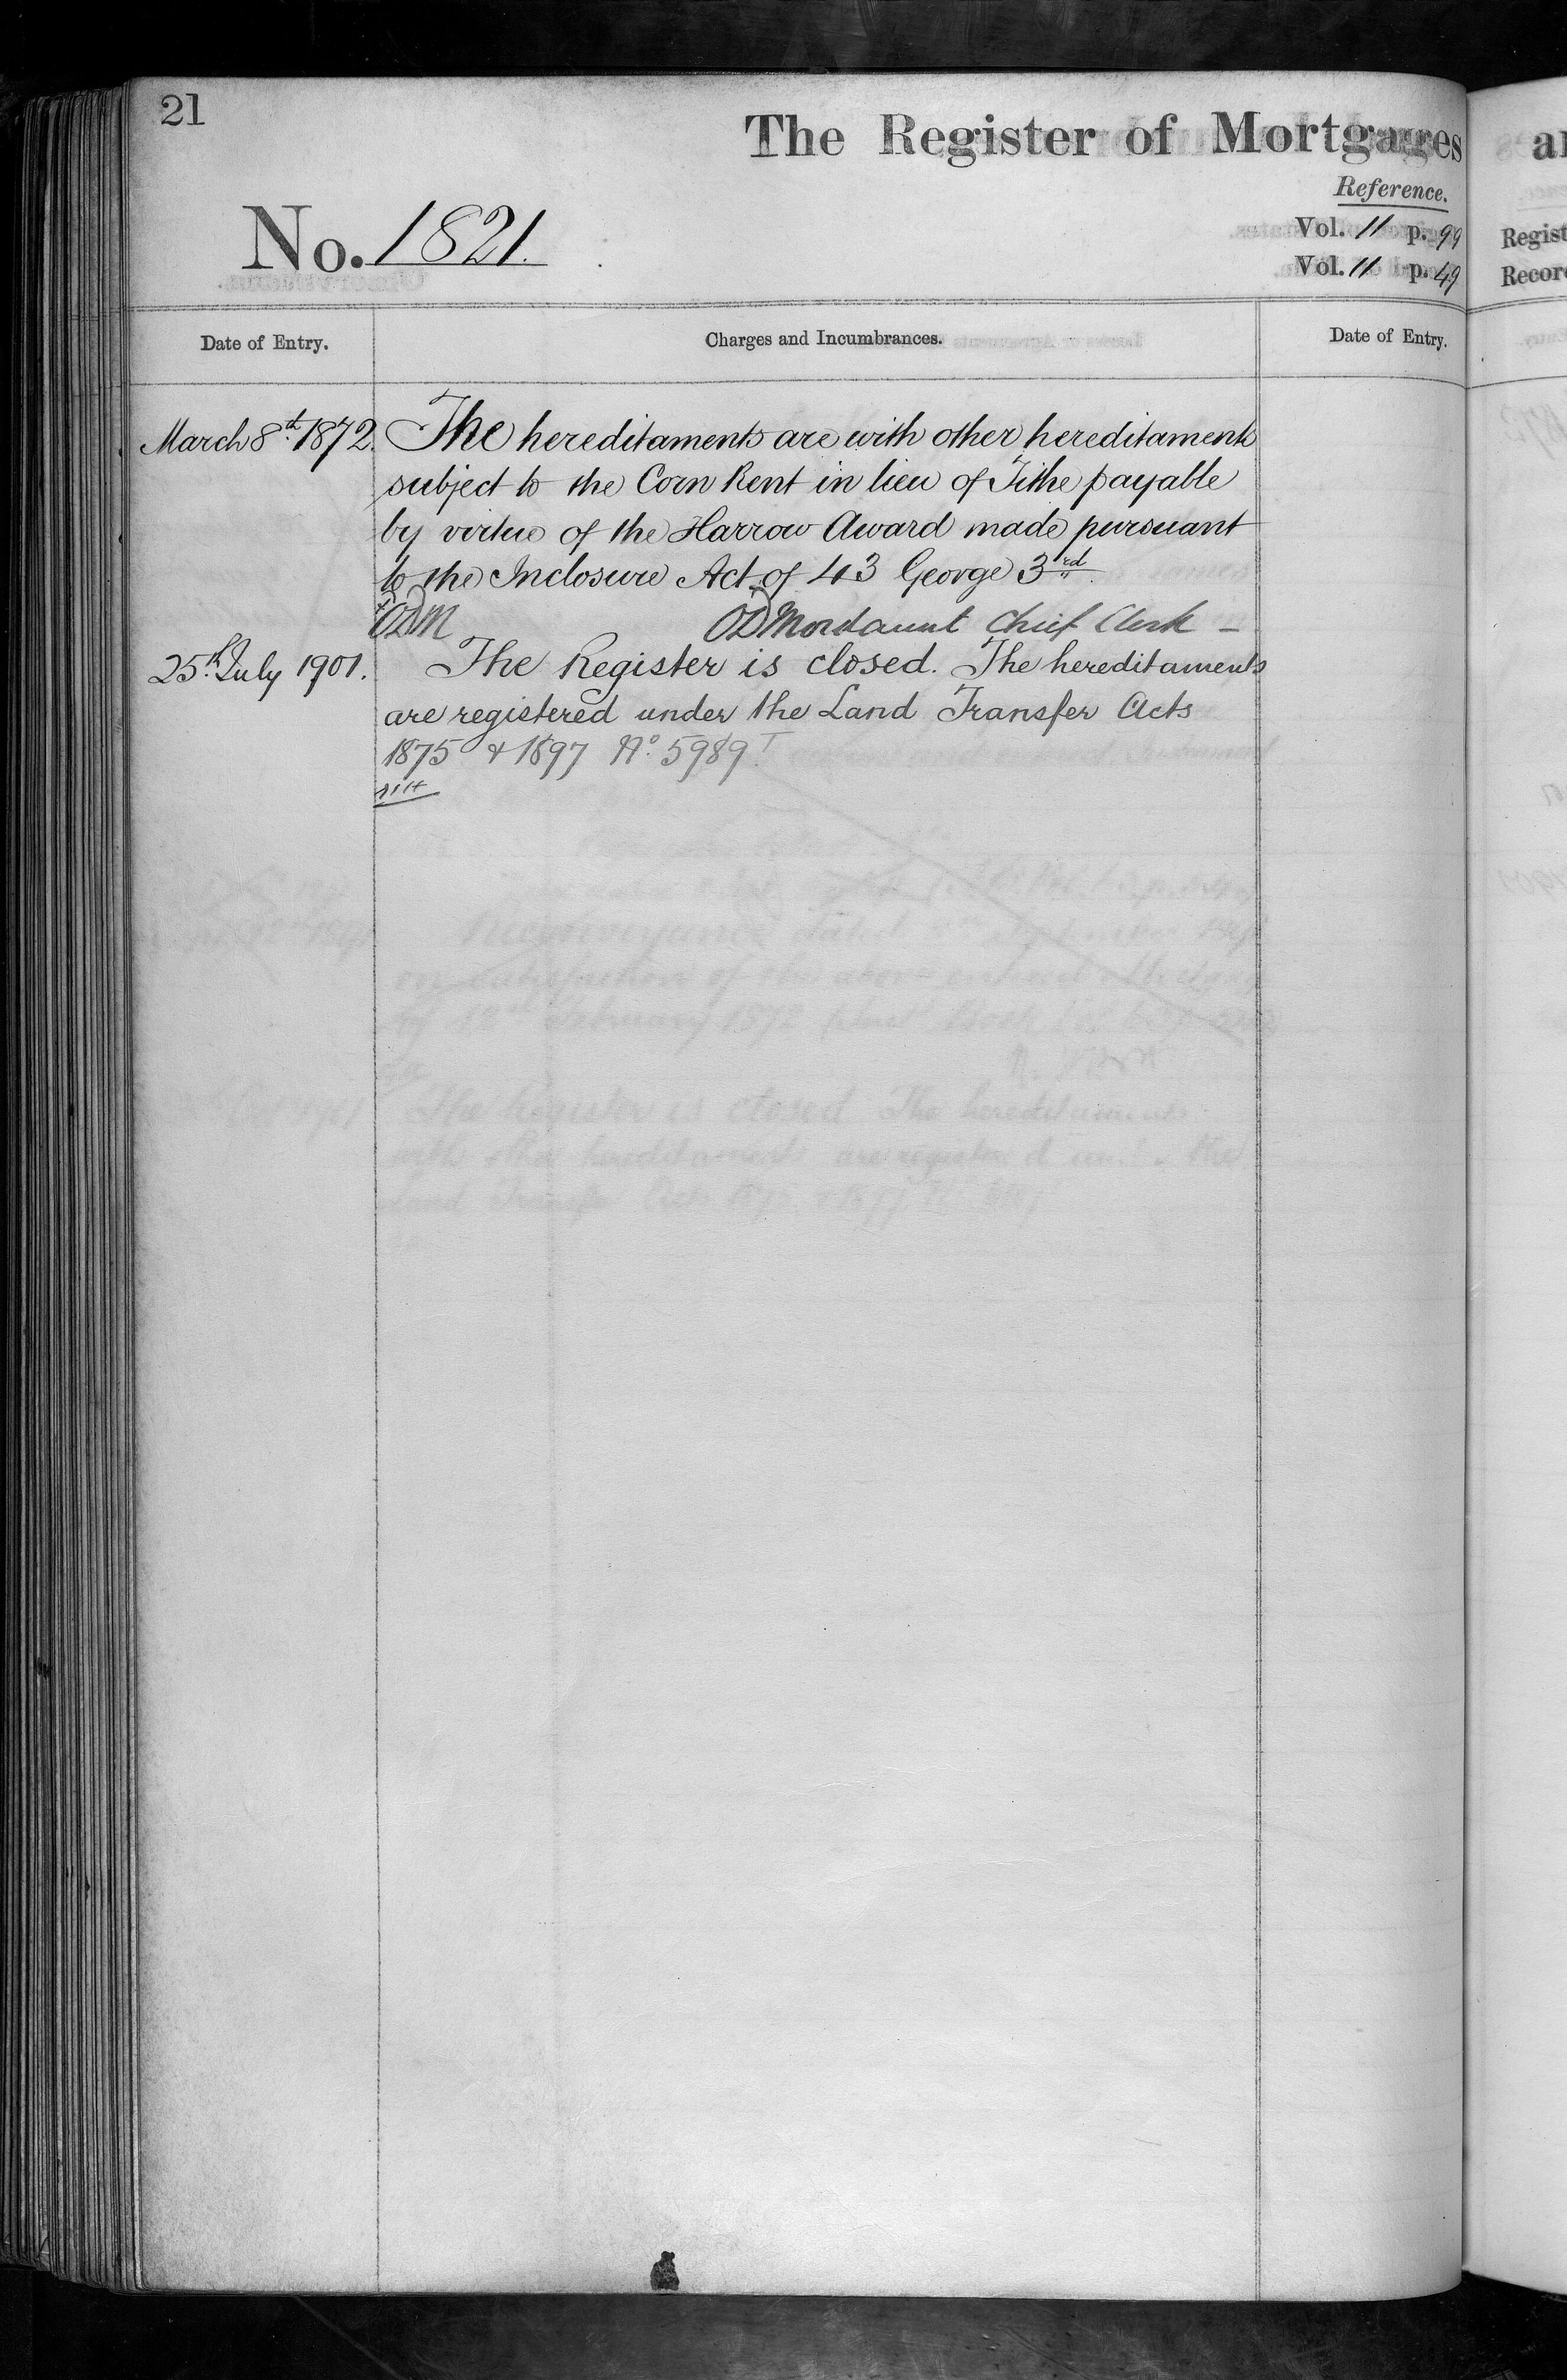 21
The Register of Mortgages
Reference.
No. 1821.
Vol. 11 p. 99
Vol. 11 p. 49
Regist
Record
Date of Entry.
Charges and Incumbrances.
Date of Entry.
March 8th. 1872.
The hereditaments are with other hereditaments
subject to the Corn Rent in lieu of Tithe payable
by virtue of the Harrow Award made pursuant
to the Inclosure Act of 43 George 3rd.
ODM
OD Mordaunt Chief Clerk –
25th. July 1901.
The Register is closed. The hereditaments
are registered under the Land Transfer Acts
1875 & 1897 No. 5989